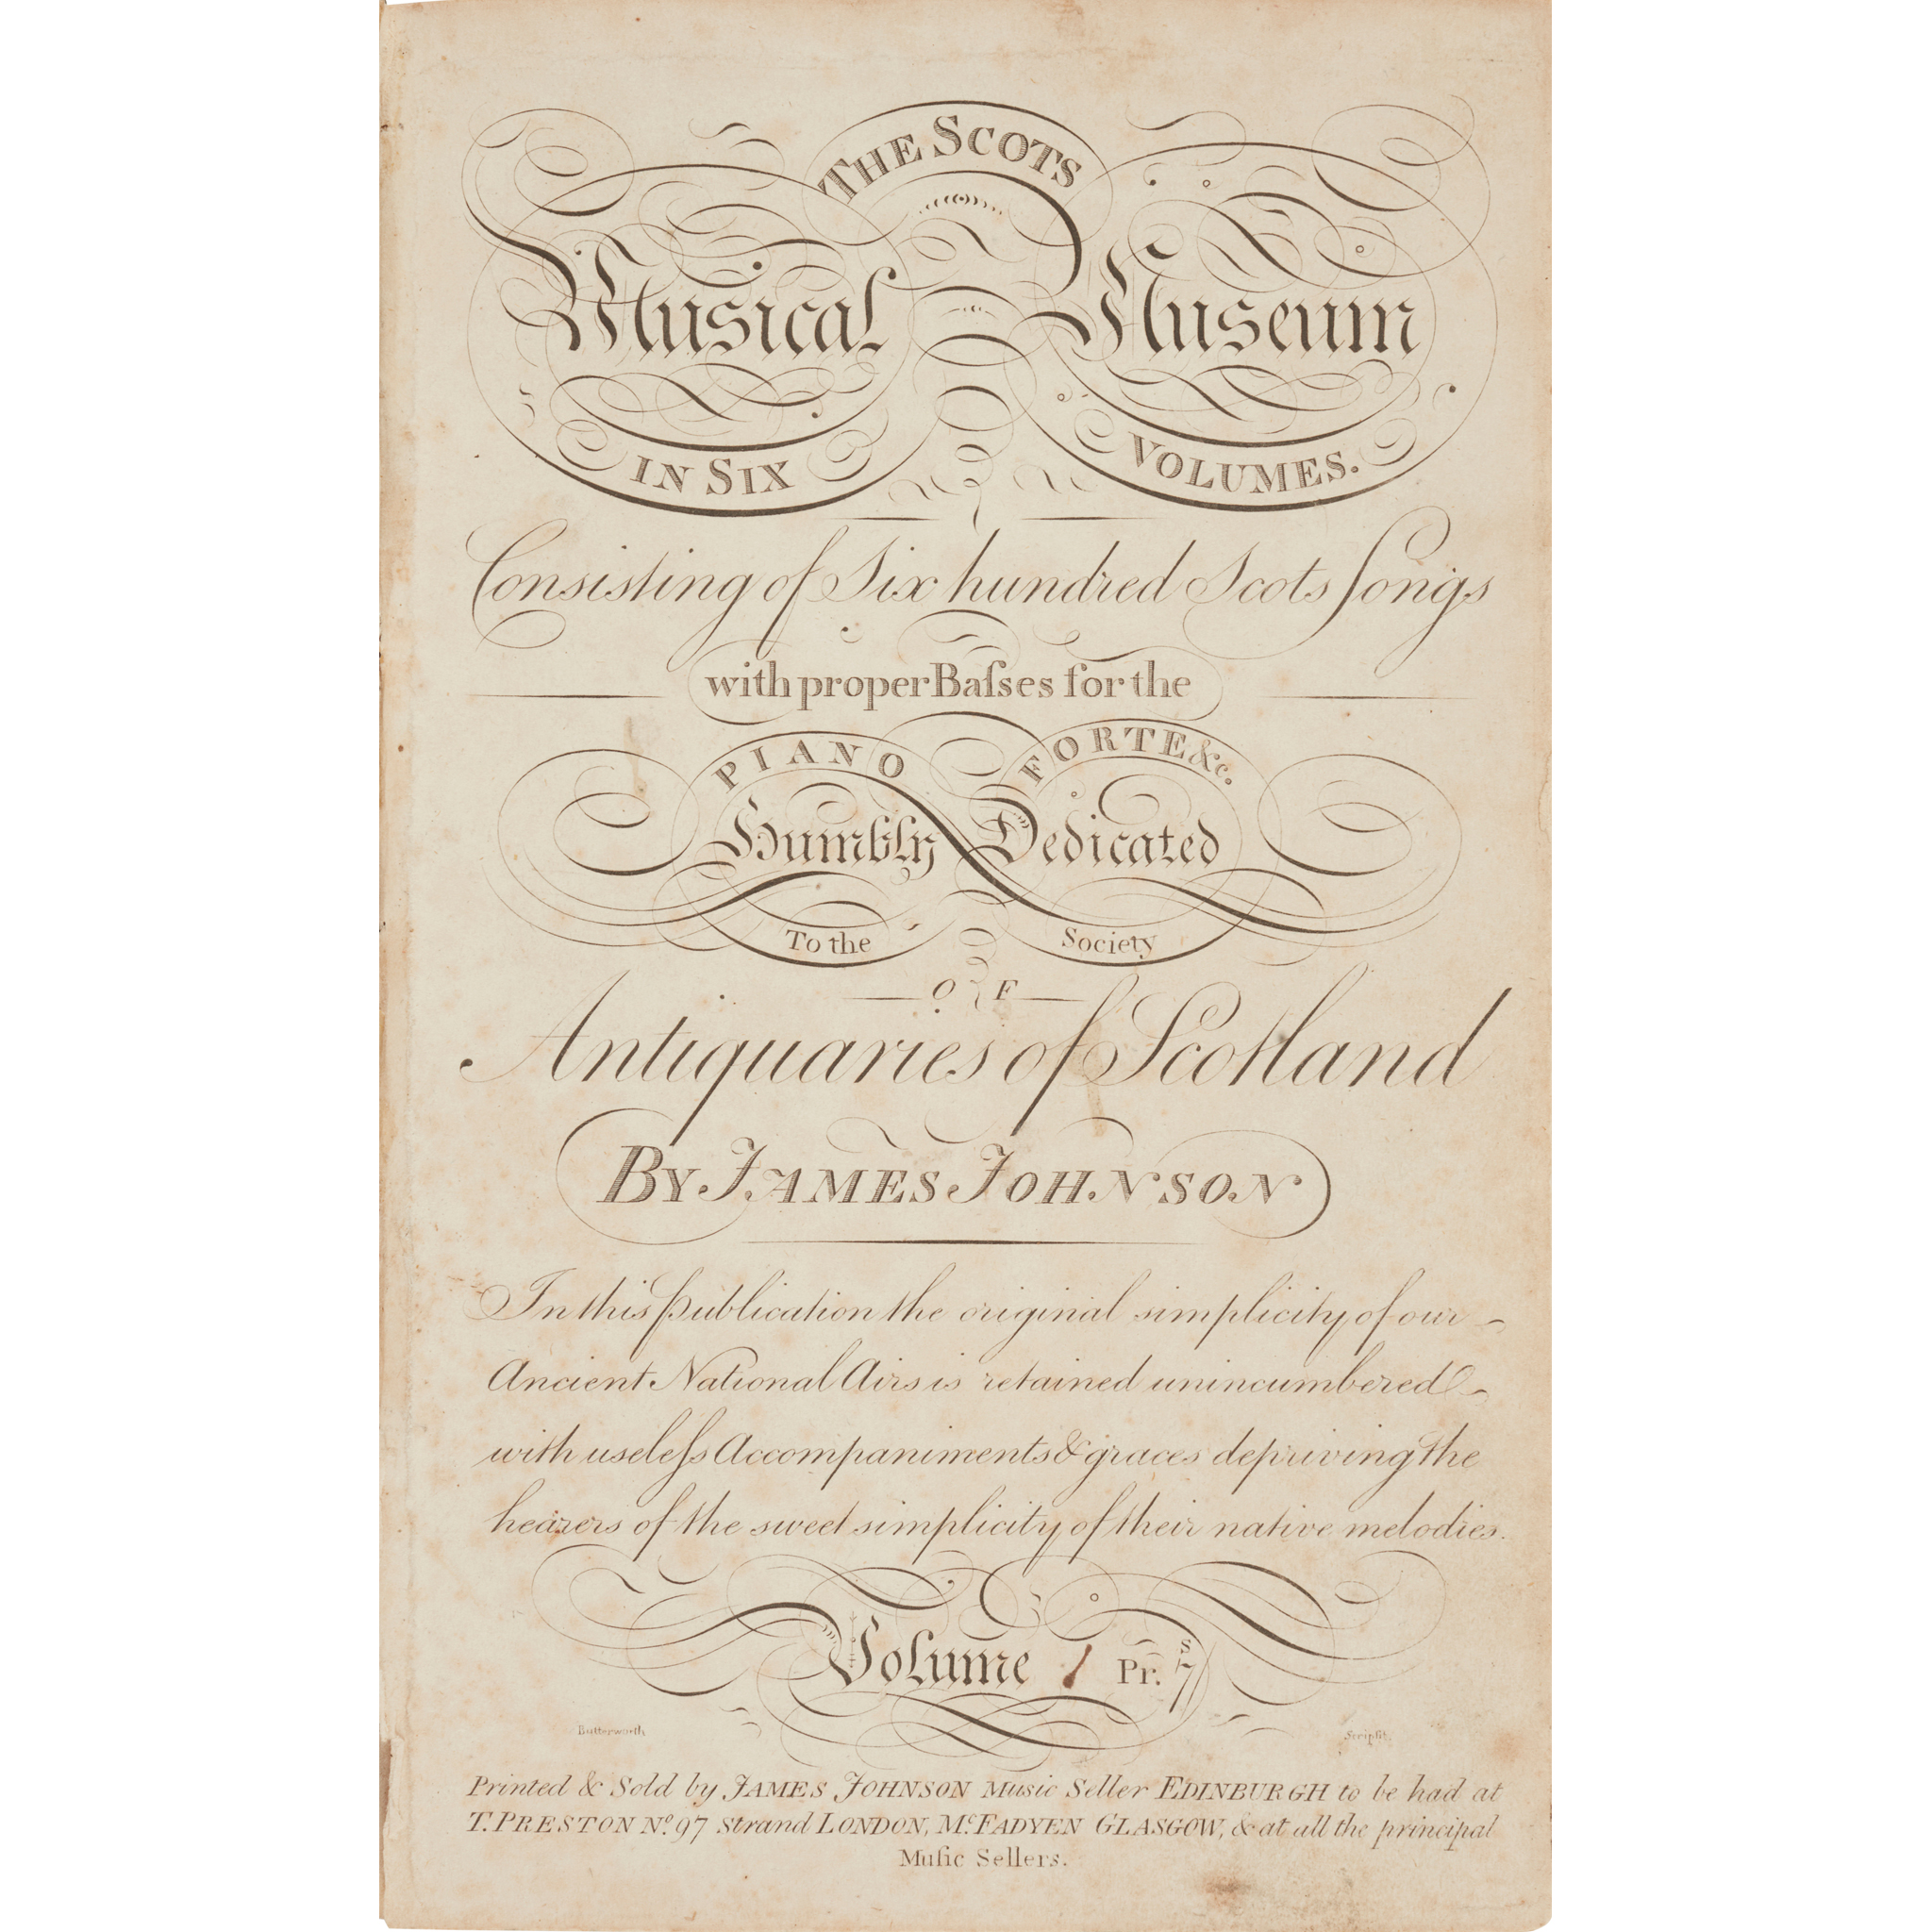 THE SCOTS
Musical Museum
IN SIX VOLUMES.
Consisting of Six hundred Scots Songs
with proper Baſses for the
PIANO FORTE &c.
Humbly Dedicated
To the Society
OF
Antiquaries of Scotland
BY JAMES JOHNSON
In this publication the original simplicity of our
Ancient National Airs is retained unincumbered
with useleſs Accompaniments & graces depriving the
hearers of the sweet simplicity of their native melodies.
Volume 1 Pr. 7s
Butterworth Scripsit.
Printed & Sold by JAMES JOHNSON Music Seller EDINBURGH to be had at
T. PRESTON No. 97 Strand LONDON, Mc.FADYEN GLASGOW, & at all the principal
Muſic Sellers.